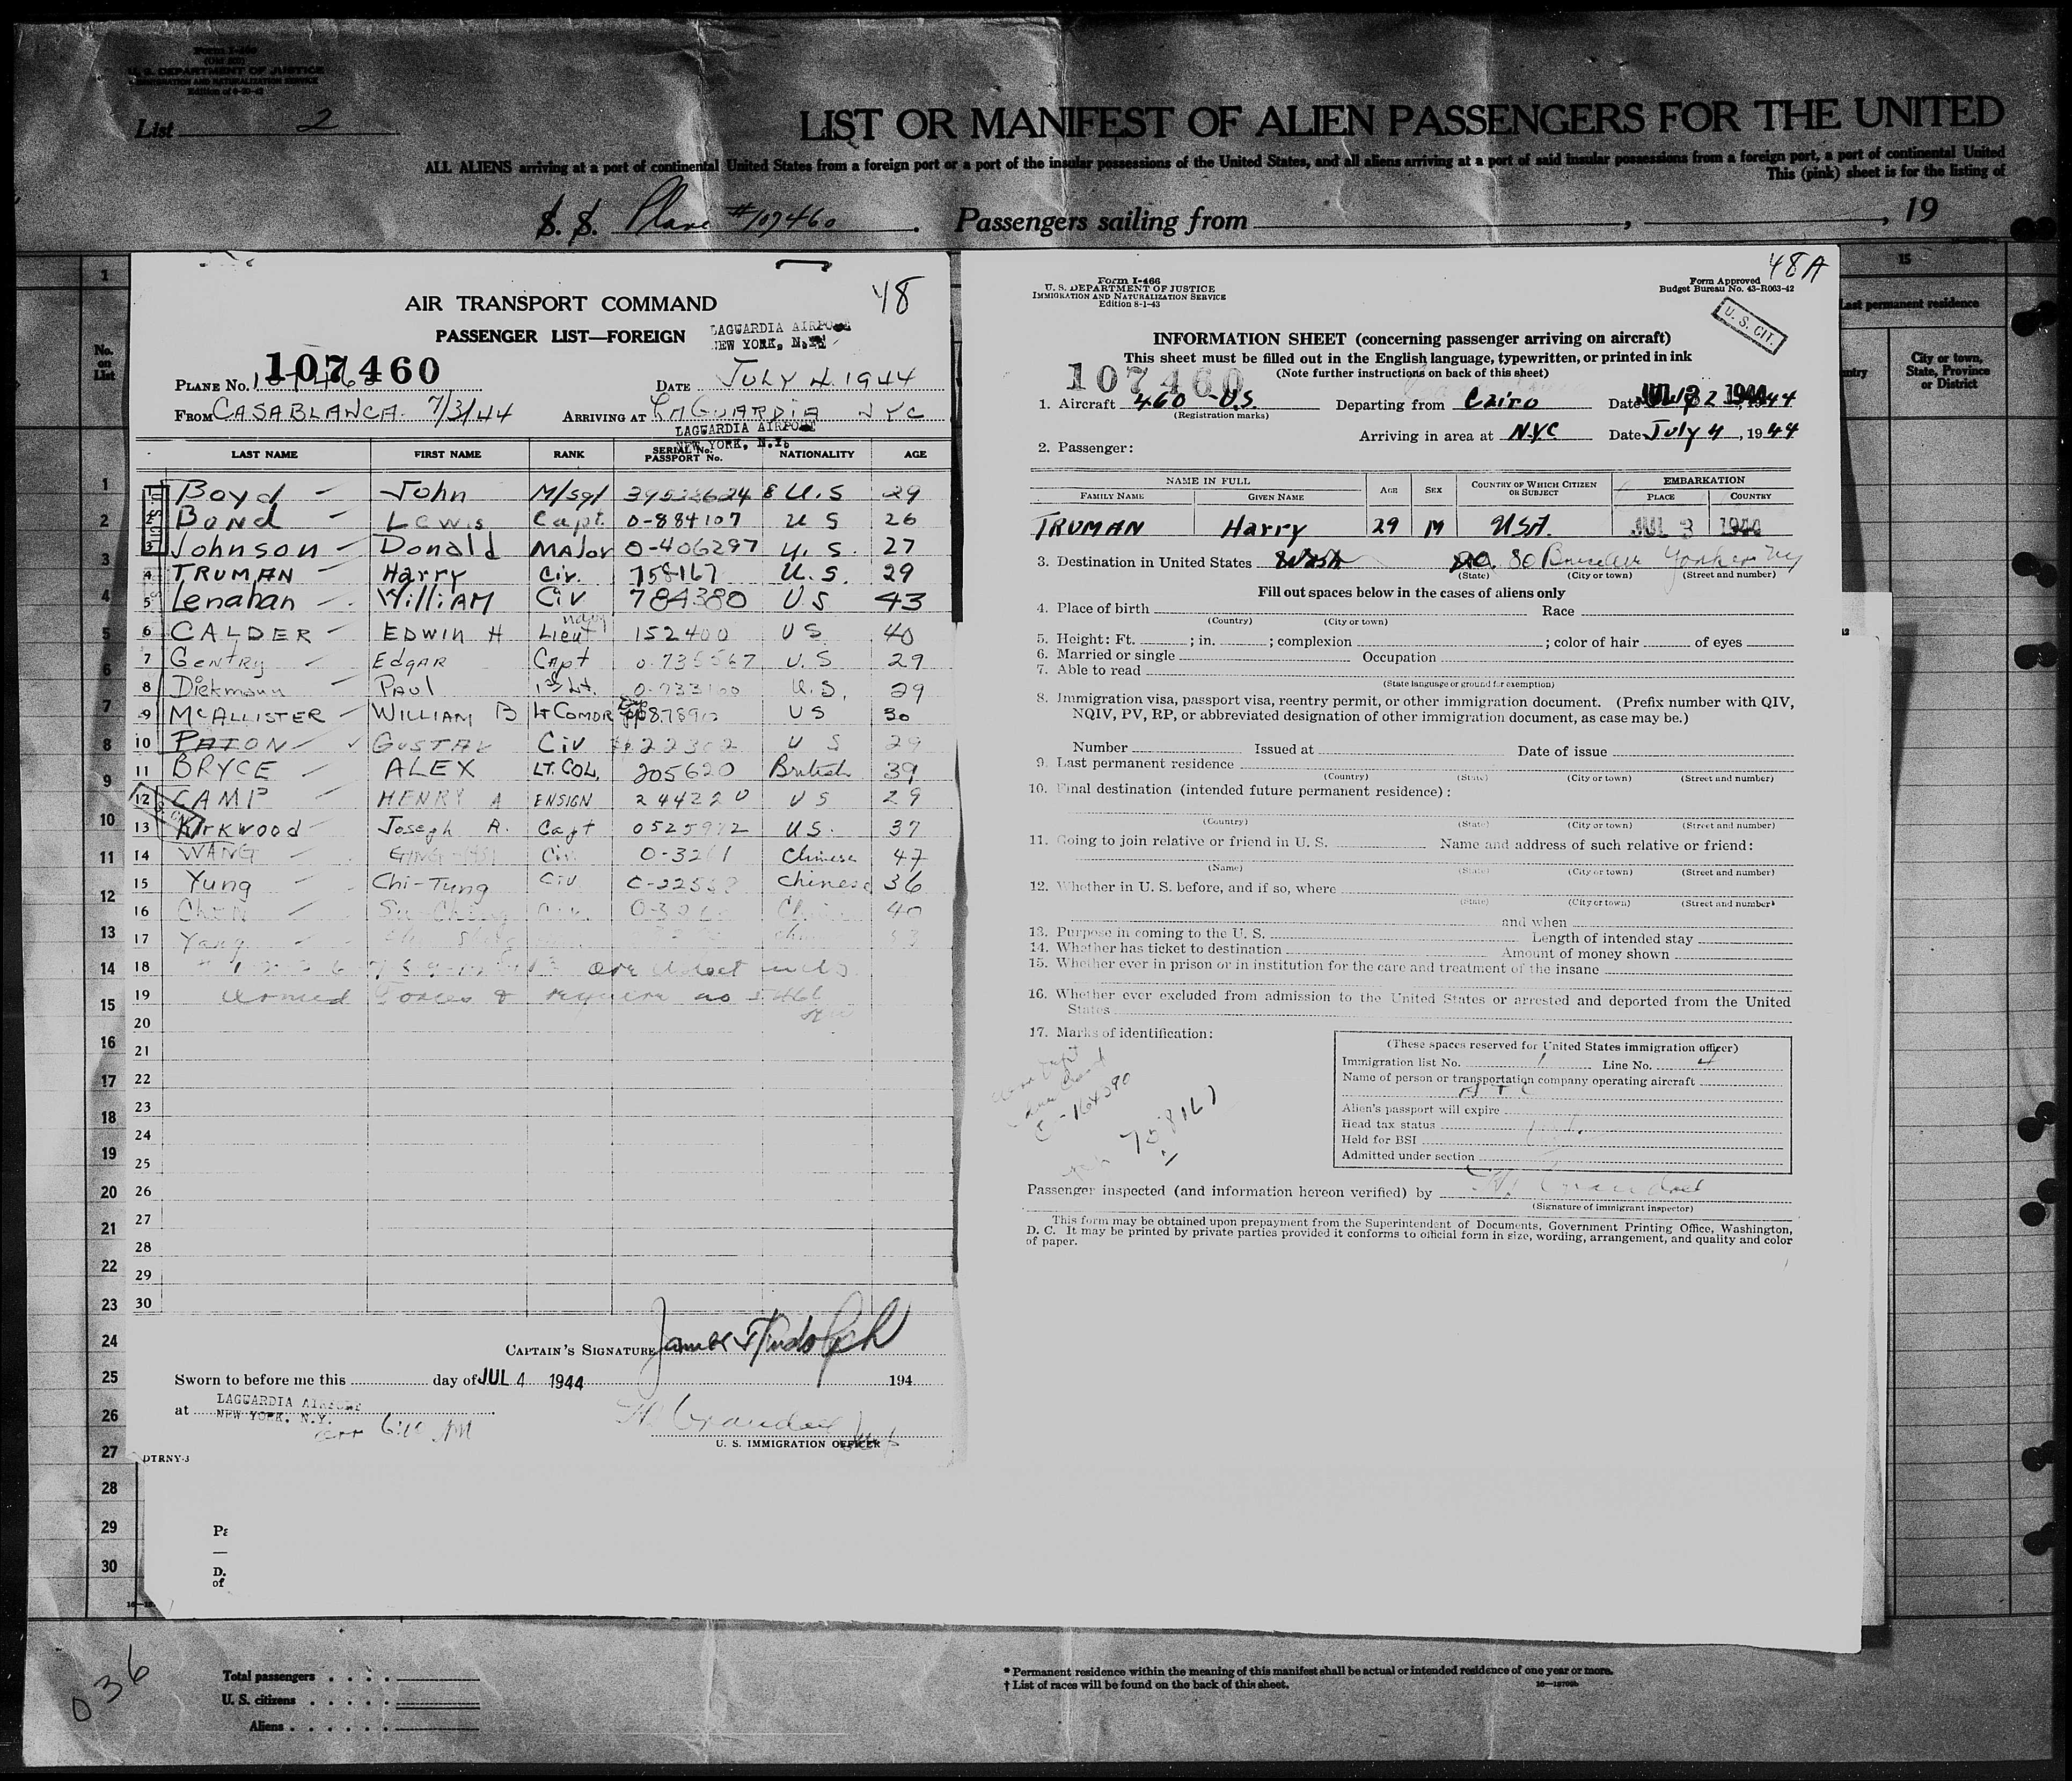 Form I-466
U. S. DEPARTMENT OF JUSTICE
IMMIGRATION AND NATURALIZATION SERVICE
List 2
LIST OR MANIFEST OF ALIEN PASSENGERS FOR THE UNITED
ALL ALIENS arriving at a port of continental United States from a foreign port or a port of the insular possessions of the United States, and all aliens arriving at a port of said insular possessions from a foreign port, a port of continental United
This (pink) sheet is for the listing of
S. S. Plane #107460 . Passengers sailing from , , 19
48
AIR TRANSPORT COMMAND
PASSENGER LIST—FOREIGN
LAGUARDIA AIRPORT
NEW YORK, N.Y.
107460
PLANE No. DATE JULY 4. 1944
FROM CASABLANCA 7/3/44 ARRIVING AT LAGUARDIA NYC
LAGUARDIA AIRPORT
NEW YORK, N.Y.
LAST NAME FIRST NAME RANK SERIAL No. PASSPORT No. NATIONALITY AGE
1 Boyd John M/Sgt U.S 29
2 Bond Lewis Capt. O-884107 U S 26
3 Johnson Donald Major O-406297 U. S. 27
4 TRUMAN Harry Civ. 758167 U. S. 29
5 Lenahan William Civ 784380 U S 43
6 CALDER EDWIN H Lieut 152400 US 40
7 Gentry Edgar Capt U. S 29
8 Diekmann Paul 1st Lt. U. S. 29
9 McALLISTER WILLIAM B Lt Comdr US 30
10 PATON GUSTAV Civ U S 29
11 BRYCE ALEX LT. COL. 205620 British 39
12 CAMP HENRY A ENSIGN 244220 US 29
13 Kirkwood Joseph A. Capt U.S. 37
14 WANG Civ Chinese 47
15 Yung Chi-Tung Civ Chinese 36
16 40
17 Yang
18 are
19 armed Forces & require no
20
21
22
23
24
25
26
27
28
29
30
CAPTAIN'S SIGNATURE James Rudolph
Sworn to before me this day of JUL 4 1944 194
at LAGUARDIA AIRPORT
NEW YORK, N.Y.
U. S. IMMIGRATION OFFICER
DTRNY-3
48A
Form I-466
U. S. DEPARTMENT OF JUSTICE
IMMIGRATION AND NATURALIZATION SERVICE
Edition 8-1-43
Form Approved
Budget Bureau No. 43-R063-42
U. S. CIT.
INFORMATION SHEET (concerning passenger arriving on aircraft)
This sheet must be filled out in the English language, typewritten, or printed in ink
(Note further instructions on back of this sheet)
107460
1. Aircraft 460 - U.S. Departing from Cairo Date , 1944
(Registration marks)
Arriving in area at NYC Date July 4, 1944
2. Passenger:
NAME IN FULL AGE SEX COUNTRY OF WHICH CITIZEN OR SUBJECT EMBARKATION
FAMILY NAME GIVEN NAME PLACE COUNTRY
TRUMAN Harry 29 M USA. JUL 3 1944
3. Destination in United States 80 Yonkers NY
(State) (City or town) (Street and number)
Fill out spaces below in the cases of aliens only
4. Place of birth Race
(Country) (City or town)
5. Height: Ft. ; in. ; complexion ; color of hair of eyes
6. Married or single Occupation
7. Able to read
(State language or ground for exemption)
8. Immigration visa, passport visa, reentry permit, or other immigration document. (Prefix number with QIV,
NQIV, PV, RP, or abbreviated designation of other immigration document, as case may be.)
Number Issued at Date of issue
9. Last permanent residence
(Country) (State) (City or town) (Street and number)
10. Final destination (intended future permanent residence):
(Country) (State) (City or town) (Street and number)
11. Going to join relative or friend in U. S. Name and address of such relative or friend:
(Name) (State) (City or town) (Street and number)
12. Whether in U. S. before, and if so, where
(State) (City or town) (Street and number)
and when
13. Purpose in coming to the U. S. Length of intended stay
14. Whether has ticket to destination Amount of money shown
15. Whether ever in prison or in institution for the care and treatment of the insane
16. Whether ever excluded from admission to the United States or arrested and deported from the United
States
17. Marks of identification:
758167
(These spaces reserved for United States immigration officer)
Immigration list No. 1 Line No. 4
Name of person or transportation company operating aircraft
ATC
Alien's passport will expire
Head tax status
Held for BSI
Admitted under section
Passenger inspected (and information hereon verified) by
(Signature of immigrant inspector)
This form may be obtained upon prepayment from the Superintendent of Documents, Government Printing Office, Washington,
D. C. It may be printed by private parties provided it conforms to official form in size, wording, arrangement, and quality and color
of paper.
No. on List
1
2
3
4
5
6
7
8
9
10
11
12
13
14
15
16
17
18
19
20
21
22
23
24
25
26
27
28
29
30
15
Last permanent residence
City or town, State, Province or District
D.
of
036
Total passengers
U. S. citizens
Aliens
* Permanent residence within the meaning of this manifest shall be actual or intended residence of one year or more.
† List of races will be found on the back of this sheet.